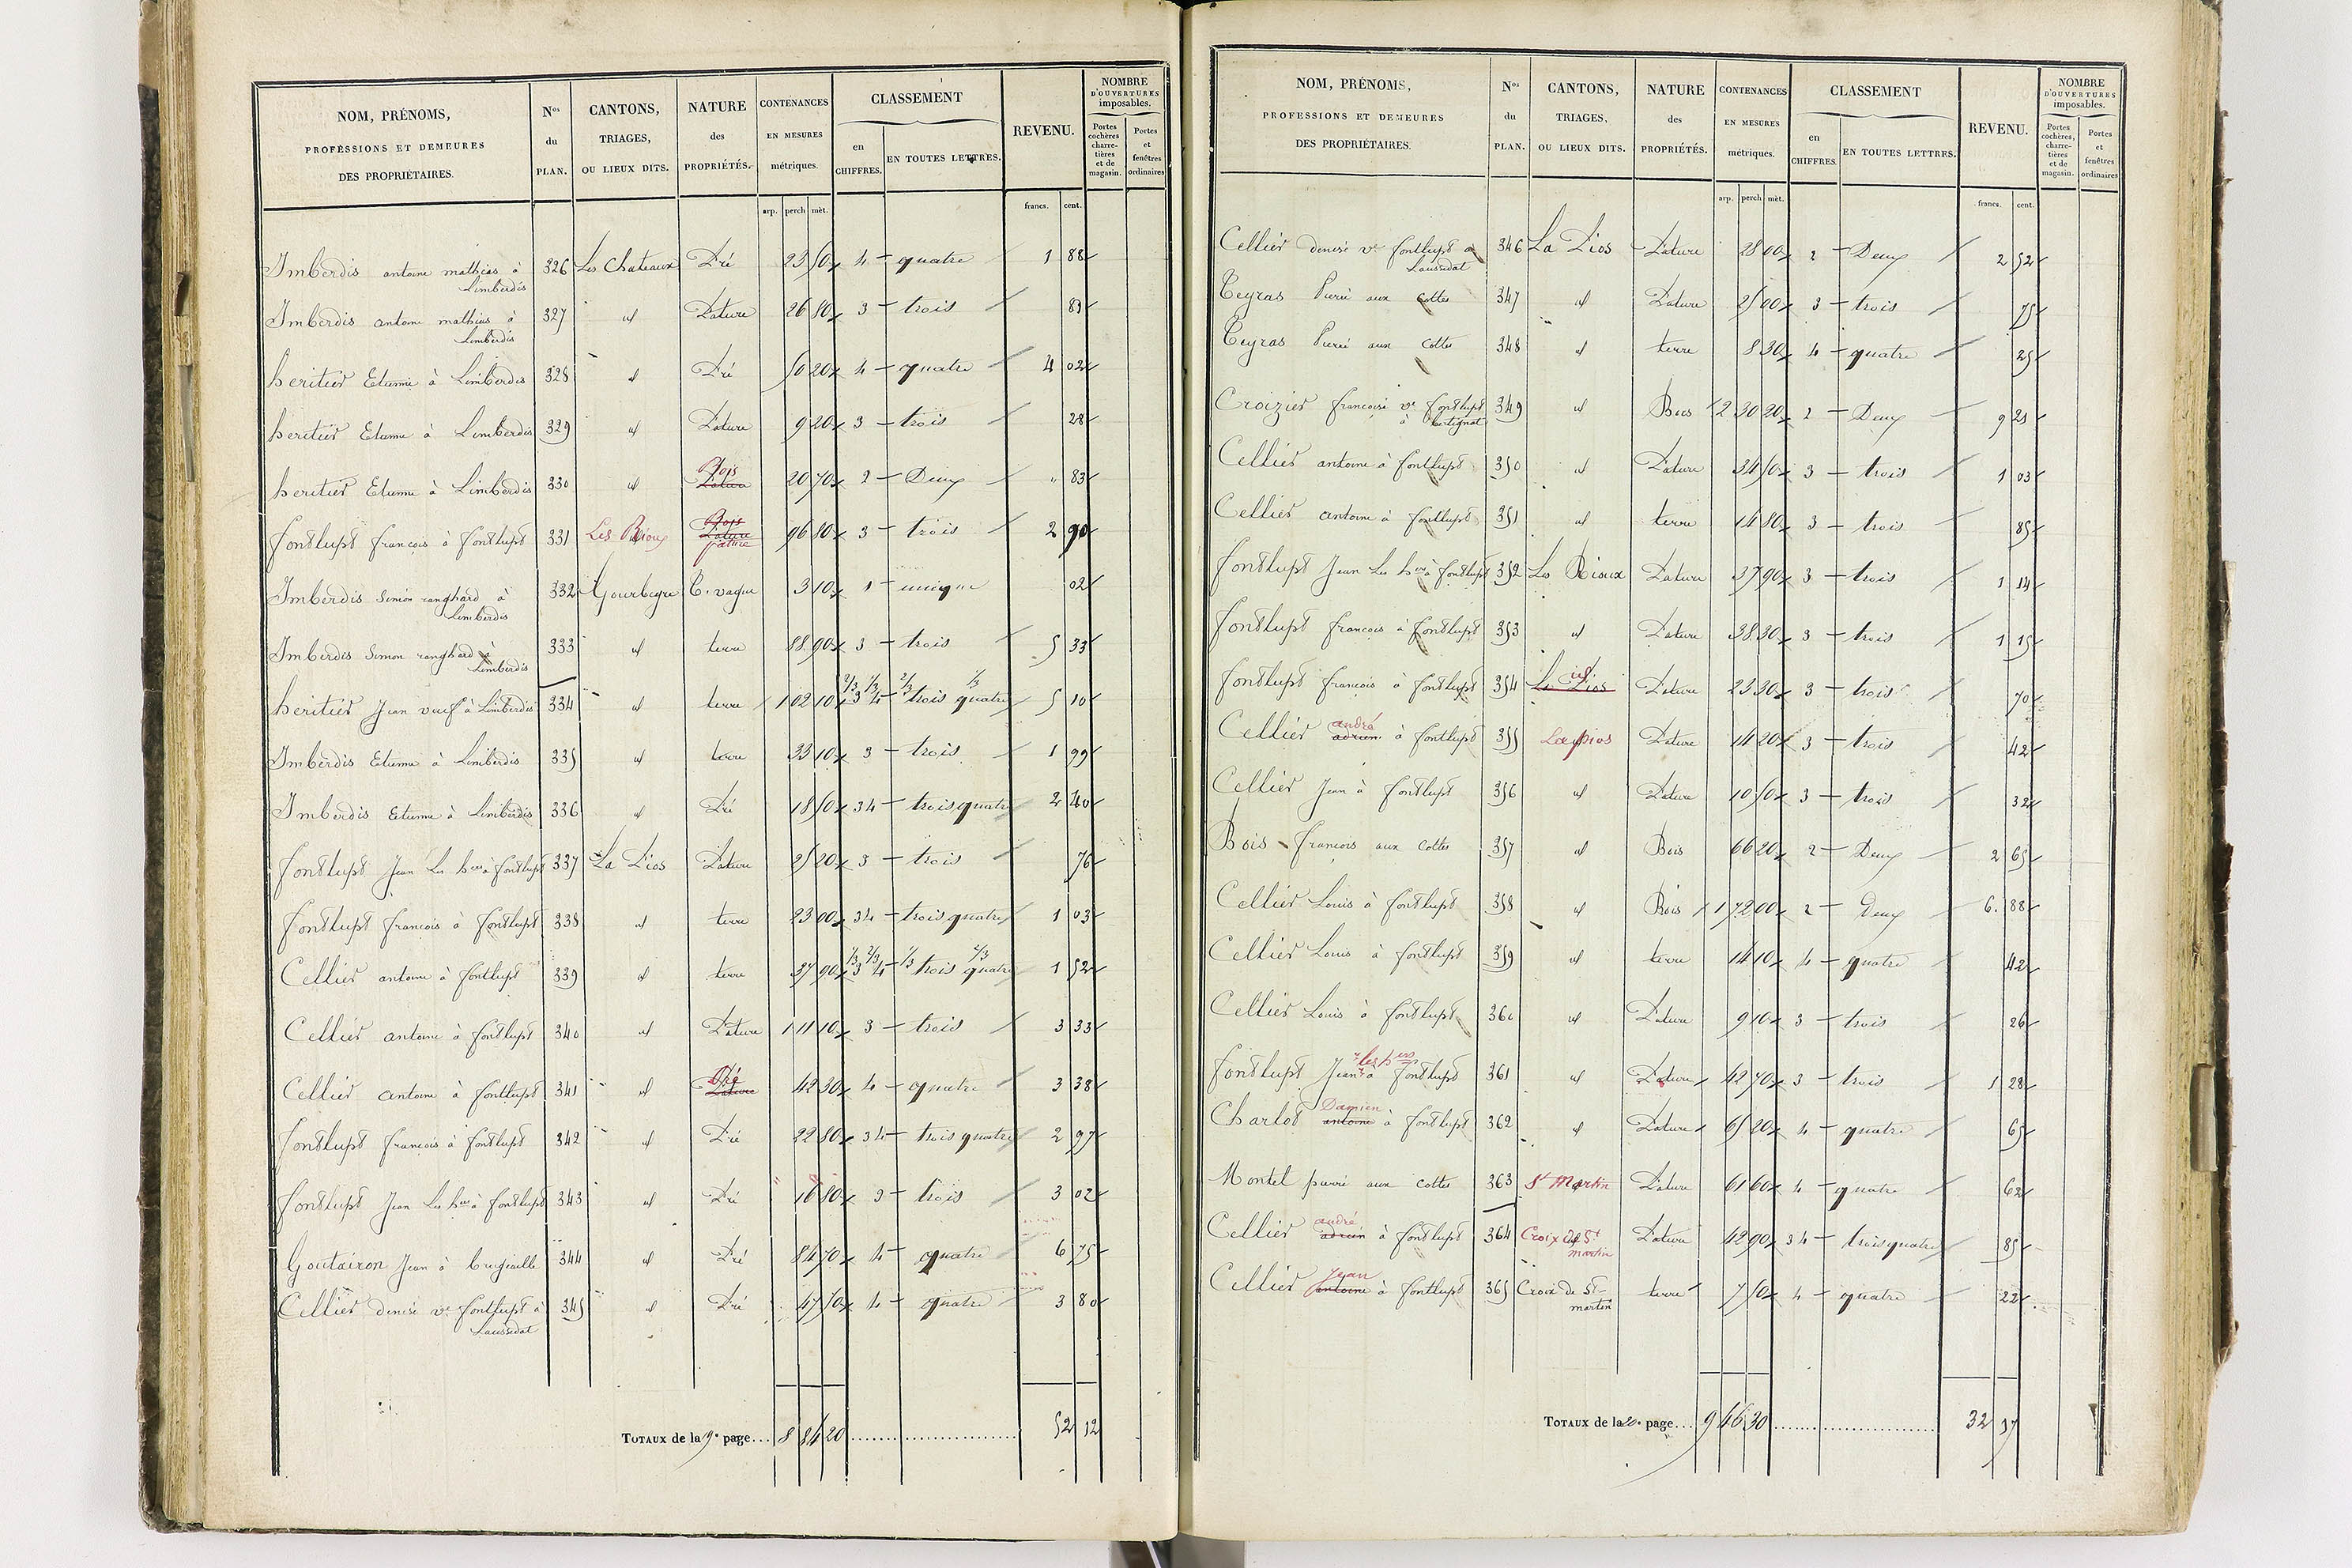 NOM, PRÉNOMS, PROFESSIONS ET DEMEURES DES PROPRIÉTAIRES.
Nos du PLAN.
CANTONS, TRIAGES, OU LIEUX DITS.
NATURE des PROPRIÉTÉS.
CONTENANCES EN MESURES métriques.
CLASSEMENT
en CHIFFRES.
EN TOUTES LETTRES.
REVENU.
NOMBRE D'OUVERTURES imposables.
Portes cochères charretières et de magasin.
Portes et fenêtres ordinaires
arp. perch. mèt. francs. cent.
Imberdis antoine mathias à Limberdis 326 Les Chateaux Pré 23 50 4 quatre 1 88
Imberdis antoine mathias à Limberdis 327 id Pature 26 80 3 trois 81
heritier Etienne à Limberdis 328 id Pré 50 20 4 quatre 4 02
heritier Etienne à Limberdis 329 id Pature 9 20 3 trois 28
heritier Etienne à Limberdis 330 id Bois Pature 20 70 2 Deux " 83
fontlupt francois à fontlupt 331 Les Rioux Bois Pature pature 96 80 3 trois 2 90
Imberdis Simon ranghard à Limberdis 332 Gourbeyre T. vague 3 10 1 unique 02
Imberdis Simon ranghard à Limberdis 333 id terre 88 90 3 trois 5 33
heritier Jean veuf à Limberdis 334 id terre 1 02 10 2/3 3 1/3 4 2/3 trois 1/3 quatre 5 10
Imberdis Etienne à Limberdis 335 id terre 33 10 3 trois 1 99
Imberdis Etienne à Limberdis 336 id Pré 18 50 3 4 trois quatre 2 40
fontlupt Jean Les hers à fontlupt 337 La Pios Pature 25 20 3 trois 76
fontlupt francois à fontlupt 338 id terre 23 00 3 4 trois quatre 1 03
Cellier antoine à fontlupt 339 id terre 37 90 1/3 3 2/3 4 1/3 trois 2/3 quatre 1 52
Cellier antoine à fontlupt 340 id Pature 1 11 10 3 trois 3 33
Cellier antoine à fontlupt 341 id Pré Pature 42 30 4 quatre 3 38
fontlupt francois à fontlupt 342 id Pré 22 80 3 4 trois quatre 2 97
fontlupt Jean Les hers à fontlupt 343 id Pré 16 80 3 trois 3 02
Goutairon Jean à 344 id Pré 84 70 4 quatre 6 75
Cellier denise ve fontlupt à Laussedat 345 id Pré 47 50 4 quatre 3 80
TOTAUX de la 19e page... 8 84 20 52 12
NOM, PRÉNOMS, PROFESSIONS ET DEMEURES DES PROPRIÉTAIRES.
Nos du PLAN.
CANTONS, TRIAGES, OU LIEUX DITS.
NATURE des PROPRIÉTÉS.
CONTENANCES EN MESURES métriques.
CLASSEMENT
en CHIFFRES.
EN TOUTES LETTRES.
REVENU.
NOMBRE D'OUVERTURES imposables.
Portes cochères, charretières et de magasin.
Portes et fenêtres ordinaires
arp. perch. mèt. francs. cent.
Cellier denise ve fontlupt à Laussedat 346 La Pios Pature 28 00 2 Deux 2 52
Teyras Pierre aux cottes 347 id Pature 25 00 3 trois 75
Teyras Pierre aux cottes 348 id terre 8 30 4 quatre 25
Croizier francoise ve fontlupt à 349 id Bois 2 30 20 2 Deux 9 21
Cellier antoine à fontlupt 350 id Pature 34 50 3 trois 1 03
Cellier antoine à fontlupt 351 id terre 14 80 3 trois 89
fontlupt Jean Les hers à fontlupt 352 Les Rioux Pature 37 90 3 trois 1 14
fontlupt francois à fontlupt 353 id Pature 38 30 3 trois 1 15
fontlupt francois à fontlupt 354 id La Pios Pature 23 30 3 trois 70
Cellier andré adrien à fontlupt 355 La pios Pature 14 20 3 trois 42
Cellier Jean à fontlupt 356 id Pature 10 50 3 trois 32
Bois francois aux cottes 357 id Bois 66 20 2 Deux 2 65
Cellier Louis à fontlupt 358 id Bois 1 72 00 2 Deux 6 88
Cellier Louis à fontlupt 359 id terre 14 10 4 quatre 42
Cellier Louis à fontlupt 360 id Pature 9 10 3 trois 26
fontlupt Jean les hers à fontlupt 361 id Pature 42 70 3 trois 1 28
Charlot Damien antoine à fontlupt 362 id Pature 65 20 4 quatre 65
Montel pierre aux cottes 363 St Martin Pature 61 60 4 quatre 62
Cellier andré adrien à fontlupt 364 Croix de St martin Pature 42 90 3 4 trois quatre 85
Cellier Jean antoine à fontlupt 365 Croix de St martin terre 7 50 4 quatre 22
TOTAUX de la 20e page... 9 46 30 32 37